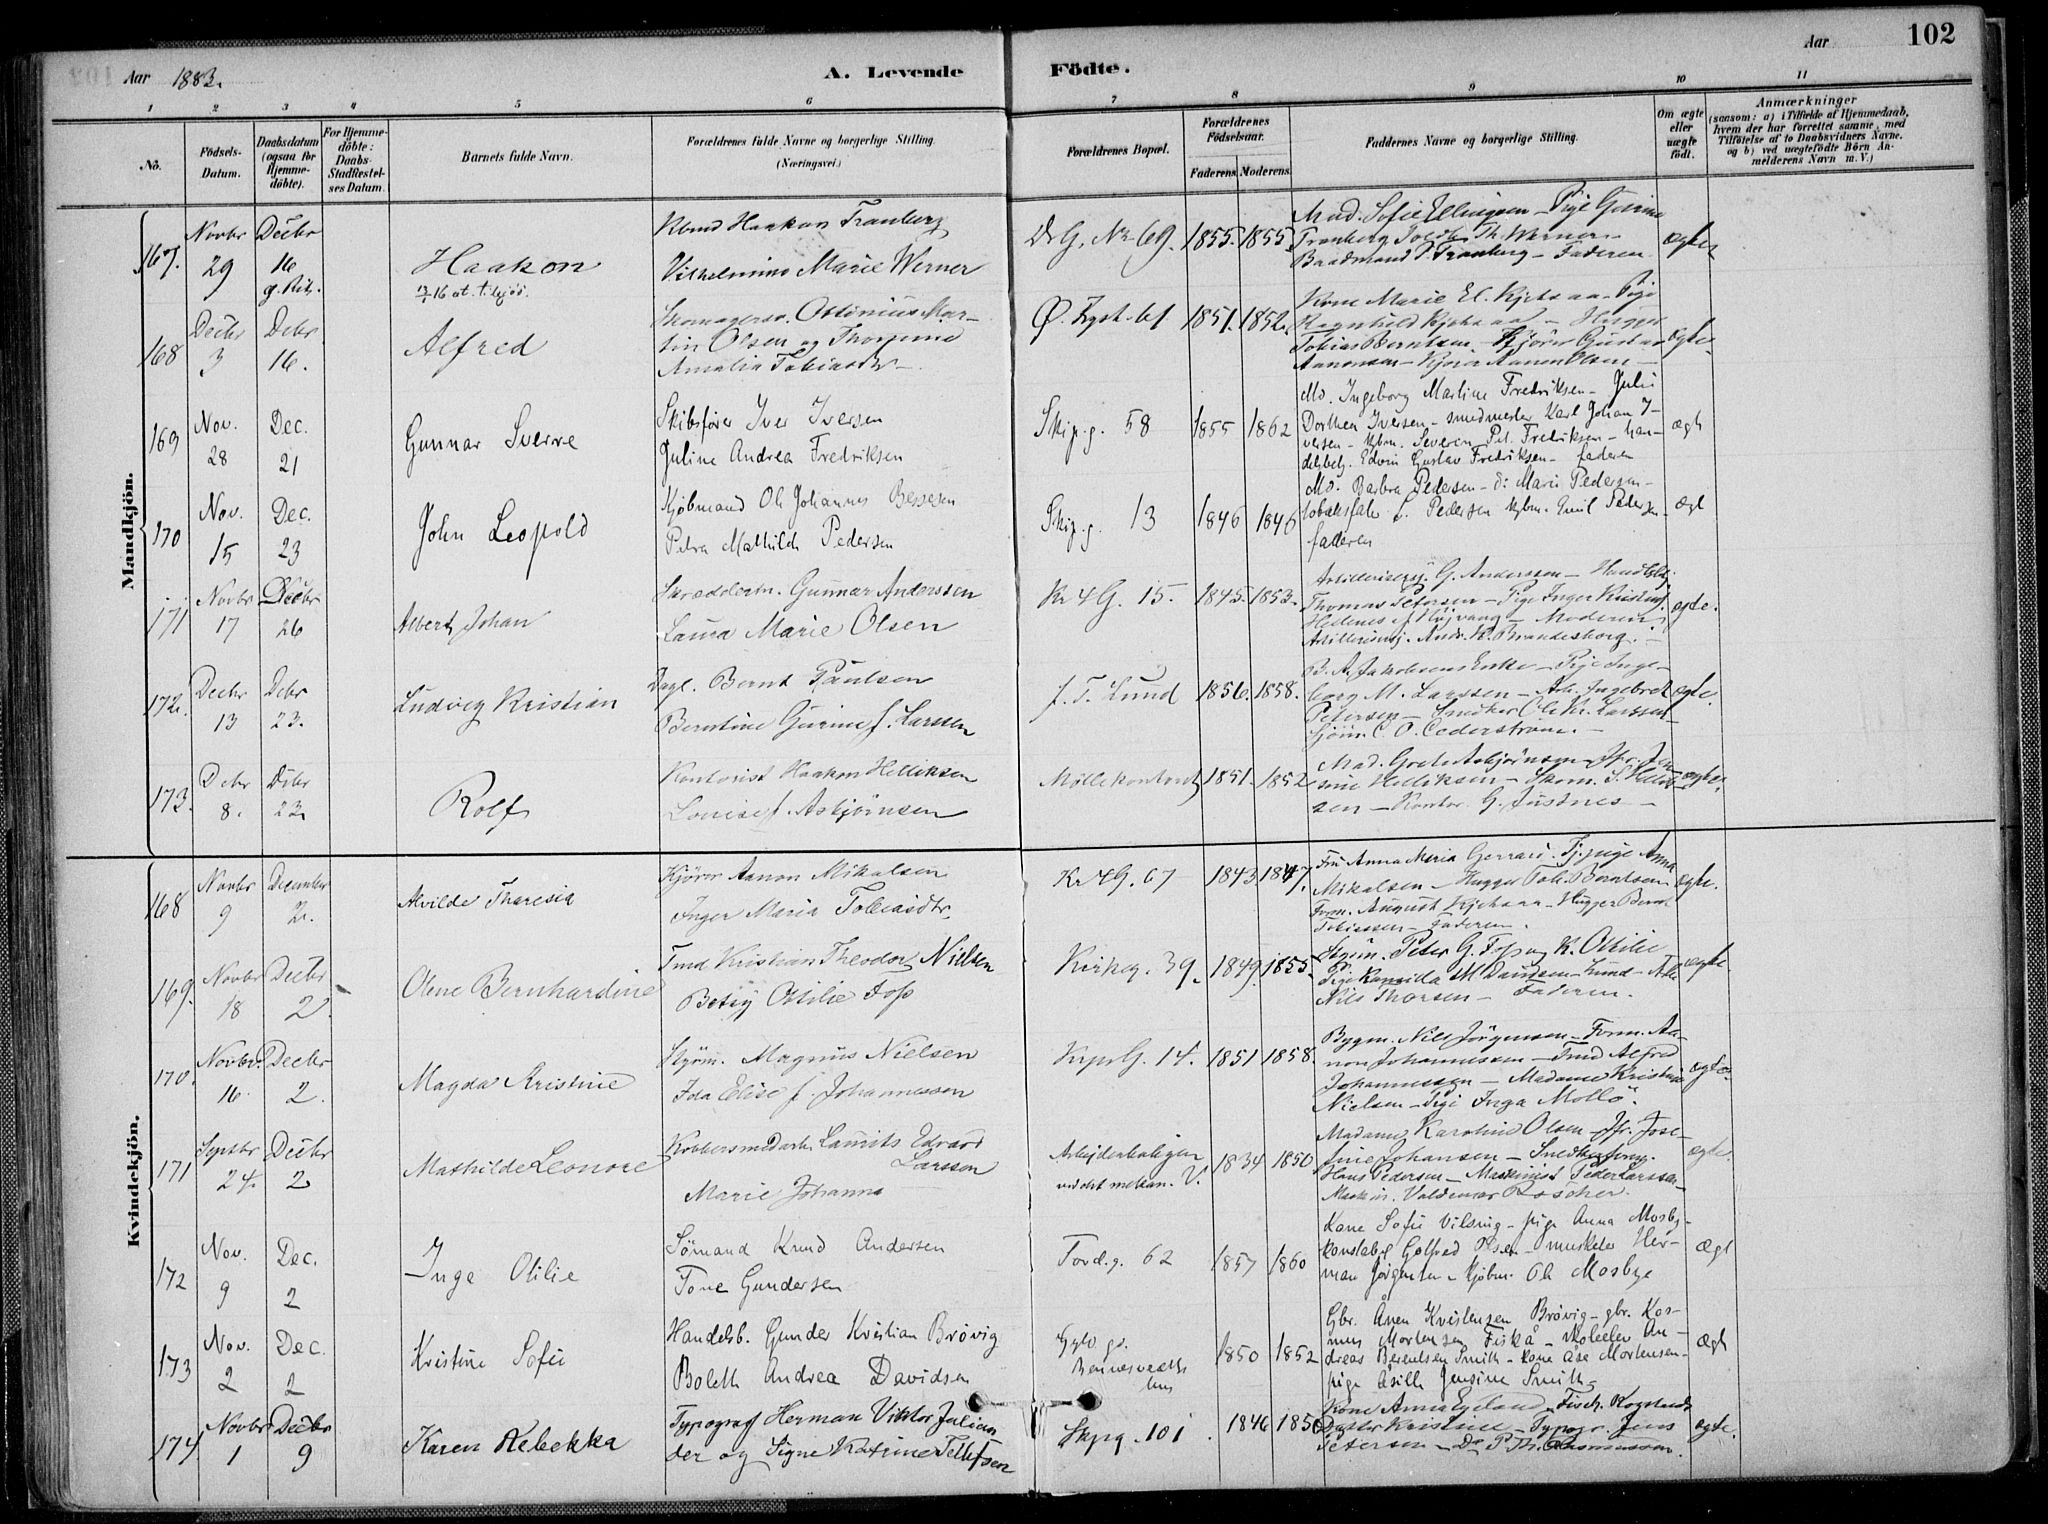 102
Aar 1883.
A. Levende Födte.
Aar
1 2 3 4 5 6 7 8 9 10 11
No. Födsels-Datum. Daabsdatum (ogsaa for Hjemme-döbte). For Hjemme-döbte: Daabs-Stadfæstel-ses Datum. Barnets fulde Navn. Forældrenes fulde Navne og borgerlige Stilling. (Næringsvei.) Forældrenes Bopæl. Forældrenes Födselsaar. Faderens. Moderens. Faddernes Navne og borgerlige Stilling. Om ægte eller uægte födt. Anmærkninger (saasom: a) i Tilfælde af Hjemmedaab, hvem der har forrettet samme, med Tilföielse af to Daabsvidners Navne, og b) ved uægtefödte Börn An-melderens Navn m. V.)
Mandkjön.
167. Novbr 29 Decbr 16 Haakon Haakon Tranberg
Vilhelmine Marie Werner
Dr G. No 69. 1855. 1855. Mad. Sofie Ellingsen - Pige
Tranberg Th. Werner
Baadmand Tranberg - Faderen ægte
168 Decbr 3 Debr 16. Alfred Skomagersv. Ottinius Mar-
tin Olsen og
Amalia Tobiasdtr
1851. 1852. Kone Marie El. Kjetsaa - Pige
Ragnhild Kjetsaa - Hugger
Tobias Berntsen - Kjörer Gustav
Aanonsen - Kjörer Aanon Olsen ægte
169 Nov. 28 Dec. 21 Gunnar Sverre Skibsförer Iver Iversen
Juline Andrea Fredriksen
Skip.g. 58 1855 1862 Md. Ingeborg Martine Fredriksen - Julie
Dorthea Iversen - smedmester Karl Johan I-
versen - kjbm. Severen Pet. Fredriksen - han-
delsbetj. Edvin Gustav Fredriksen - faderen ægt
170 Nov. 15 Dec. 23 John Leopold Kjöbmand Ole Johannes Bessesen
Petra Mathilde Pedersen
Skip.g. 13 1846 1846 Md. Barbra Pedersen - d: Marie Pedersen -
tobaksfabr. L. Pedersen kjbm. Emil Pedersen -
faderen ægt
171 Novbr 17 Decbr 26 Albert Johan Skrædderm. Gunnar Anderssen
Laura Marie Olsen
Kr 4 G. 15. 1845. 1853. G. Anderssen -
Thomas Petersen - Pige Inger
Moderen
Brandesborg. ægte.
172. Decbr 13 Debr 23. Ludvig Kristian Dagl. Bernt Paulsen
Berntine Gurine f. Larssen
f. T. Lund 1856. 1858. B. A. Jakobsens Enke - Pige Inge-
borg M. Larssen - Arb. Ingebret
Petersen - Snedker Ole Kr. Larssen
Sjöm. C. O. Cederström. ægte.
173. Debr 8. Debr 23. Rolf Kontorist Haakon Helliksen
Louise f. Asbjörnsen
Möllekontoret 1851. 1852 Mad. Grete Asbjörnsen - Jfr. Jen-
sine Helliksen - Skom. S. Hellik-
sen - Kontor. G. Justnes - ægte.
Kvindekjön.
168 Novbr 9 December 2. Alvilde Tharesia Kjörer Aanon Mikalsen
Inger Maria Tobiasdtr.
Kr 4 G. 67 1843 1847. Fru Anna Maria Gerrard - Tj.pige Anna
Mikalsen - Hugger Tob. Berntsen
Form. August Kjetsaa - Hugger Bernt
Tobiassen - Faderen. ægte.
169. Novbr 18 Decbr 2 Olene Bernhardine Tmd Kristian Theodor Nielsen
Betsy Ottilie Foss
Kirkeg. 39. 1849. 1855. Styrm. Peter G. Foss og K. Ottilie
Pige Ragnilda M. Davidsen - Lund -
Nils Thorsen - Faderen. ægte.
170. Novbr. 16. Decbr 2. Magda Kristine Styrm. Magnus Nielsen
Ida Elise f. Johannessen
Krps G. 14. 1851 1858. Bygm. Nils Jörgensen - Form. Aa-
non Johannessen - Tmd Alfred
Johannessen - Madame Kristine
Nielsen - Pige Inga Mollö. ægte.
171 Septbr 24. Decbr 2 Mathilde Leonore Kobbersmedarb. Laurits Edvard
Larssen
Marie Johanna
Arbeiderboligen
ved det mekan. V. 1834 1850 Madame Karoline Olsen - Jfr. Jose-
fine Johansen -
Hans Pedersen - Maskinist Peder Larssen -
Maskin. Valdemar Roscher. ægte.
172 Nov. 9 Dec. 2 Inge Otilie Sömand Knud Andersen
Tone Gundersen
Tord.g. 62 1857 1860 Kone Sofie Vilsing - pige Anna Mosby -
konstabel Golfred Olsen - musketer Her-
man Jörgensen - kjöbm. Ole Mosbye ægt
173 Nov. 2 Dec. 2 Kristine Sofie Handelsb. Gunder Kristian Brövig
Boleth Andrea Davidsen
Gyld.gv.
1850 1852 Gbr. Ånen Kristensen Brövig - gbr. Ras-
mus Mortensen Fiskå - skoleelev An-
dreas Berentsen Smith - kone Åse Mortensen -
pige Åsille Jensine Smith ægt
174. Novbr 1 Decbr 9 Karen Rebekka Typograf Herman Viktor Julian
der og Signe Katrine Tellefsen
Skpg. 101. 1846 1850 Kone Anna Egeland -
Datter Kristine - Typogr. Jens
Petersen - Do P. Th. Rasmussen. ægte.